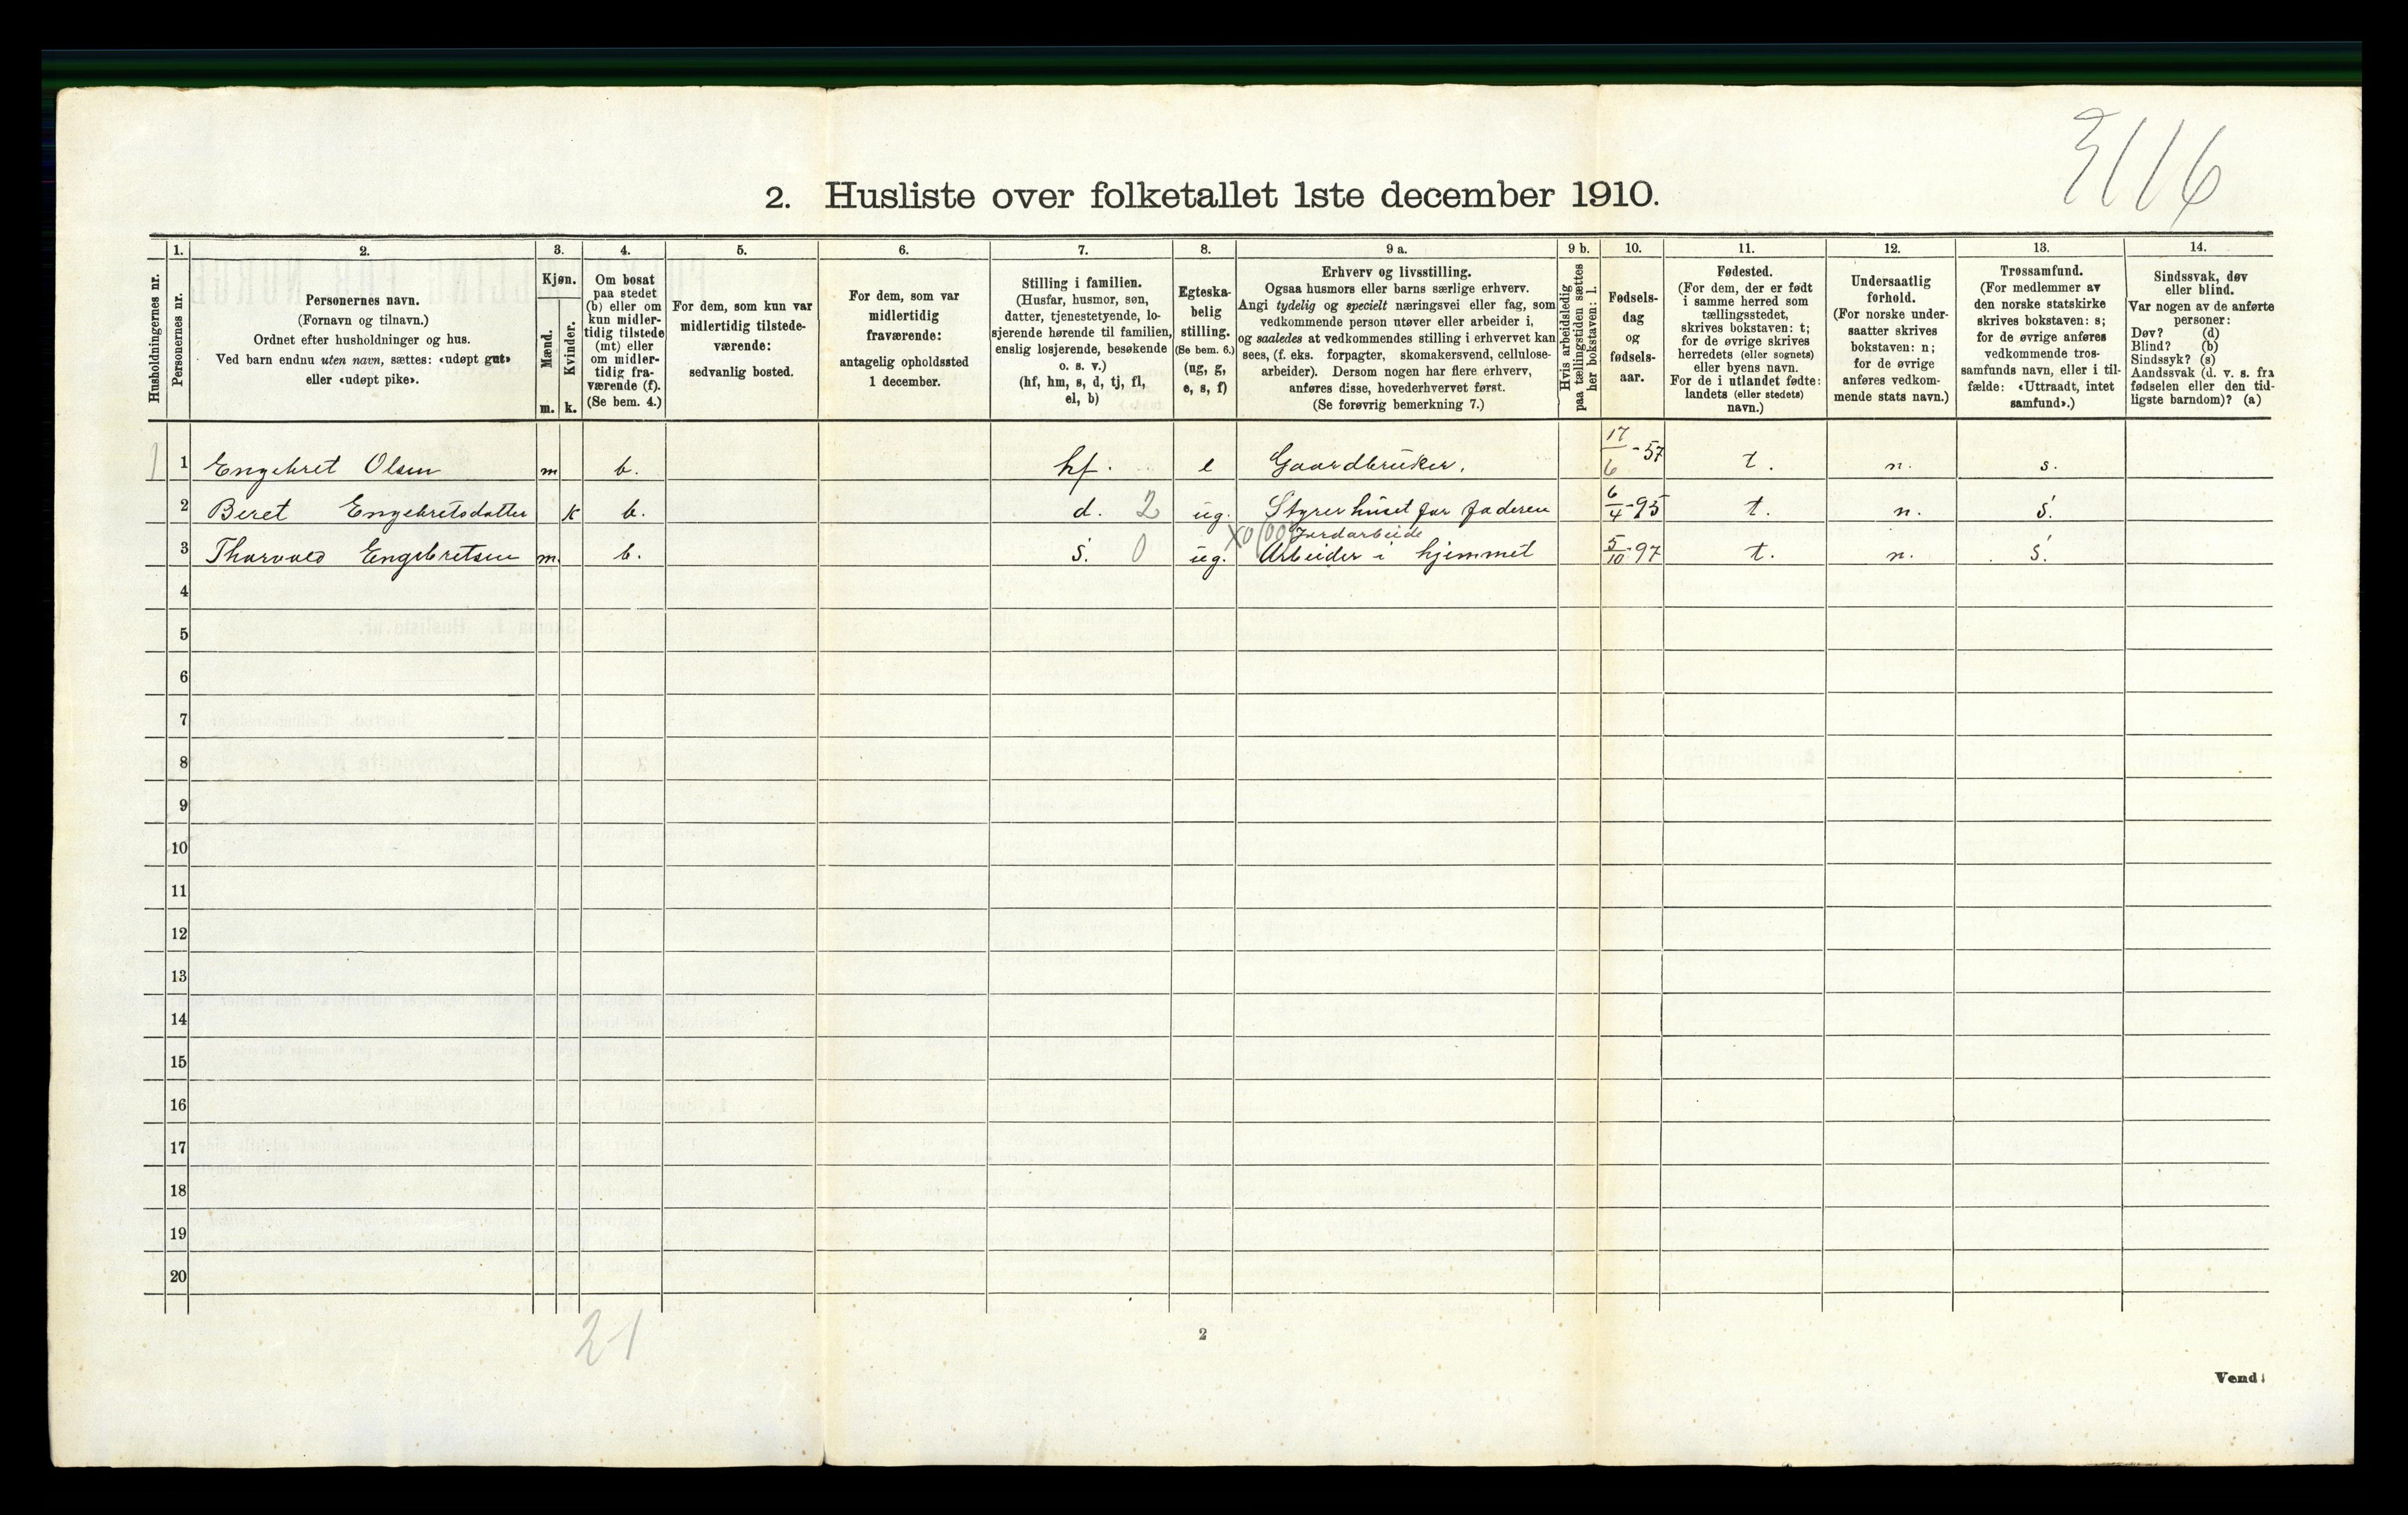 3116
2. Husliste over folketallet 1ste december 1910.
Husholdningernes nr.
1.
Personernes nr.
2.
Personernes navn.
(Fornavn og tilnavn.)
Ordnet efter husholdninger og hus.
Ved barn endnu uten navn, sættes: «udøpt gut»
eller «udøpt pike».
3.
Kjøn.
Mænd.
Kvinder.
m. k.
4.
Om bosat
paa stedet
(b) eller om
kun midler-
tidig tilstede
(mt) eller
om midler-
tidig fra-
værende (f).
(Se bem. 4.)
5.
For dem, som kun var
midlertidig tilstede-
værende:
sedvanlig bosted.
6.
For dem, som var
midlertidig
fraværende:
antagelig opholdssted
1 december.
7.
Stilling i familien.
(Husfar, husmor, søn,
datter, tjenestetyende, lo-
sjerende hørende til familien,
enslig losjerende, besøkende
o. s. v.)
(hf, hm, s, d, tj, fl,
el, b)
8.
Egteska-
belig
stilling.
(Se bem. 6.)
(ug, g,
e, s, f)
9 a.
Erhverv og livsstilling.
Ogsaa husmors eller barns særlige erhverv.
Angi tydelig og specielt næringsvei eller fag, som
vedkommende person utøver eller arbeider i,
og saaledes at vedkommendes stilling i erhvervet kan
sees, (f. eks. forpagter, skomakersvend, cellulose-
arbeider). Dersom nogen har flere erhverv,
anføres disse, hovederhvervet først.
(Se forøvrig bemerkning 7.)
9 b.
Hvis arbeidsledig
paa tællingstiden sættes
her bokstaven: l.
10.
Fødsels-
dag
og
fødsels-
aar.
11.
Fødested.
(For dem, der er født
i samme herred som
tællingsstedet,
skrives bokstaven: t;
for de øvrige skrives
herredets (eller sognets)
eller byens navn.
For de i utlandet fødte:
landets (eller stedets)
navn.)
12.
Undersaatlig
forhold.
(For norske under-
saatter skrives
bokstaven: n;
for de øvrige
anføres vedkom-
mende stats navn.)
13.
Trossamfund.
(For medlemmer av
den norske statskirke
skrives bokstaven: s;
for de øvrige anføres
vedkommende tros-
samfunds navn, eller i til-
fælde: «Uttraadt, intet
samfund».)
14.
Sindssvak, døv
eller blind.
Var nogen av de anførte
personer:
Døv? (d)
Blind? (b)
Sindssyk? (s)
Aandssvak (d. v. s. fra
fødselen eller den tid-
ligste barndom)? (a)
1 1 Engebret Olsen m b. hf. e Gaardbruker. 17/6-57 t. n. s.
2 Beret Engebretsdatter k b. d. 2 ug. Styrer huset for faderen 6/4-95 t. n. s.
Jordarbeide
3 Thorvald Engebretsen m. b. s. 0 ug. Arbeider i hjemmet 5/10-97 t. n. s.
4
5
6
7
8
9
10
11
12
13
14
15
16
17
18
19
20
2-1
2
Vend!